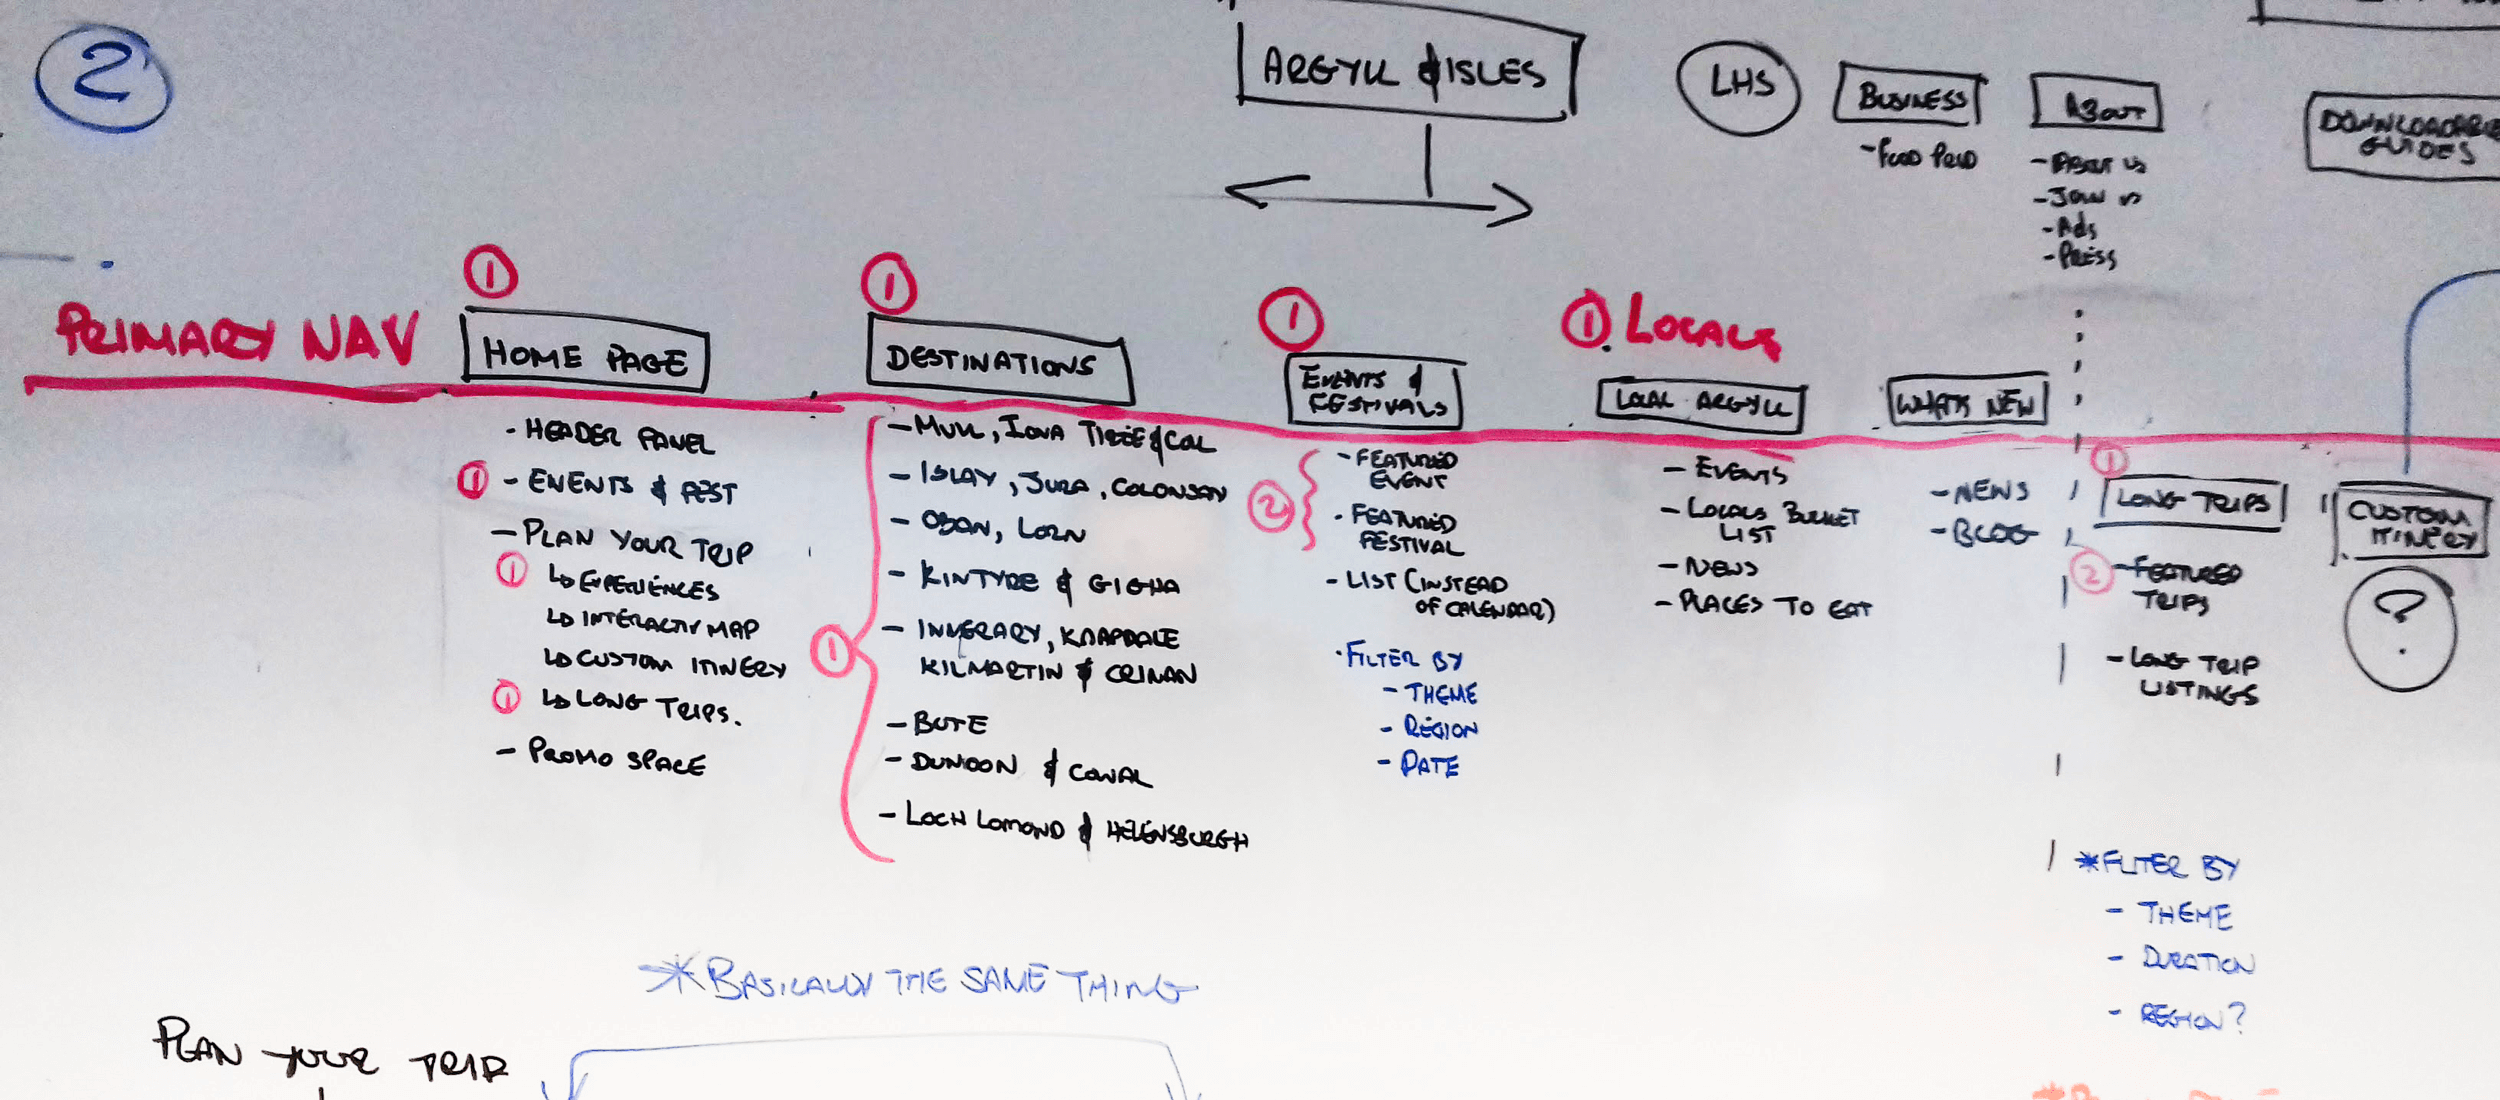 2
ARGYLL & ISLES
LHS
BUSINESS
- FOOD PROD
ABOUT
- ABOUT US
- JOIN US
- ADS
- PRESS
DOWNLOADABLE
GUIDES
PRIMARY NAV
1
HOME PAGE
- HEADER PANEL
1 - EVENTS & FEST
- PLAN YOUR TRIP
1 ↳ EXPERIENCES
↳ INTERACTIV MAP
↳ CUSTOM ITINERY
1 ↳ LONG TRIPS.
- PROMO SPACE
1
DESTINATIONS
1
- MULL, IONA TIREE & COL
- ISLAY, JURA, COLONSAY
- OBAN, LORN
- KINTYRE & GIGHA
- INVERARY, KNAPDALE
KILMARTIN & CRINAN
- BUTE
- DUNOON & COWAL
- LOCH LOMOND & HELENSBURGH
1
EVENTS &
FESTIVALS
2
- FEATURED
EVENT
- FEATURED
FESTIVAL
- LIST (INSTEAD
OF CALENDAR)
· FILTER BY
- THEME
- REGION
- DATE
1 LOCALS
LOCAL ARGYLL
- EVENTS
- LOCALS BUCKET
LIST
- NEWS
- PLACES TO EAT
WHATS NEW
- NEWS
- BLOG
1
LONG TRIPS
2 - FEATURED
TRIPS
- LONG TRIP
LISTINGS
CUSTOM
ITINERY
?
*FILTER BY
- THEME
- DURATION
- REGION?
*BASICALLY THE SAME THING
PLAN YOUR TRIP